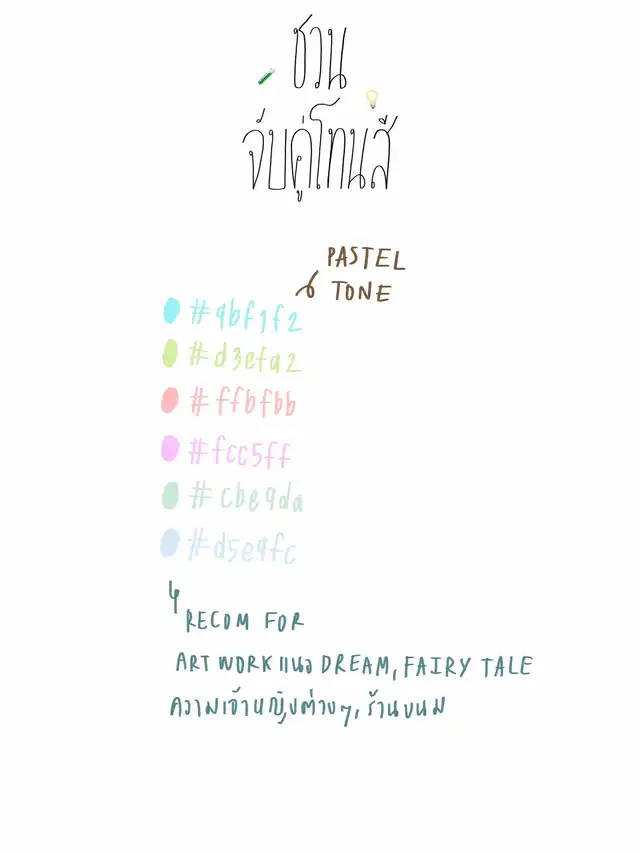 ชวน
จับคู่โทนสี
PASTEL
TONE
#9bf1f2
#d3efa2
#ffbfbb
#fcc5ff
#cbe9da
#d5e9fc
RECOM FOR
ART WORK แนว DREAM, FAIRY TALE
ความเจ้าหญิงต่างๆ, ร้านขนม